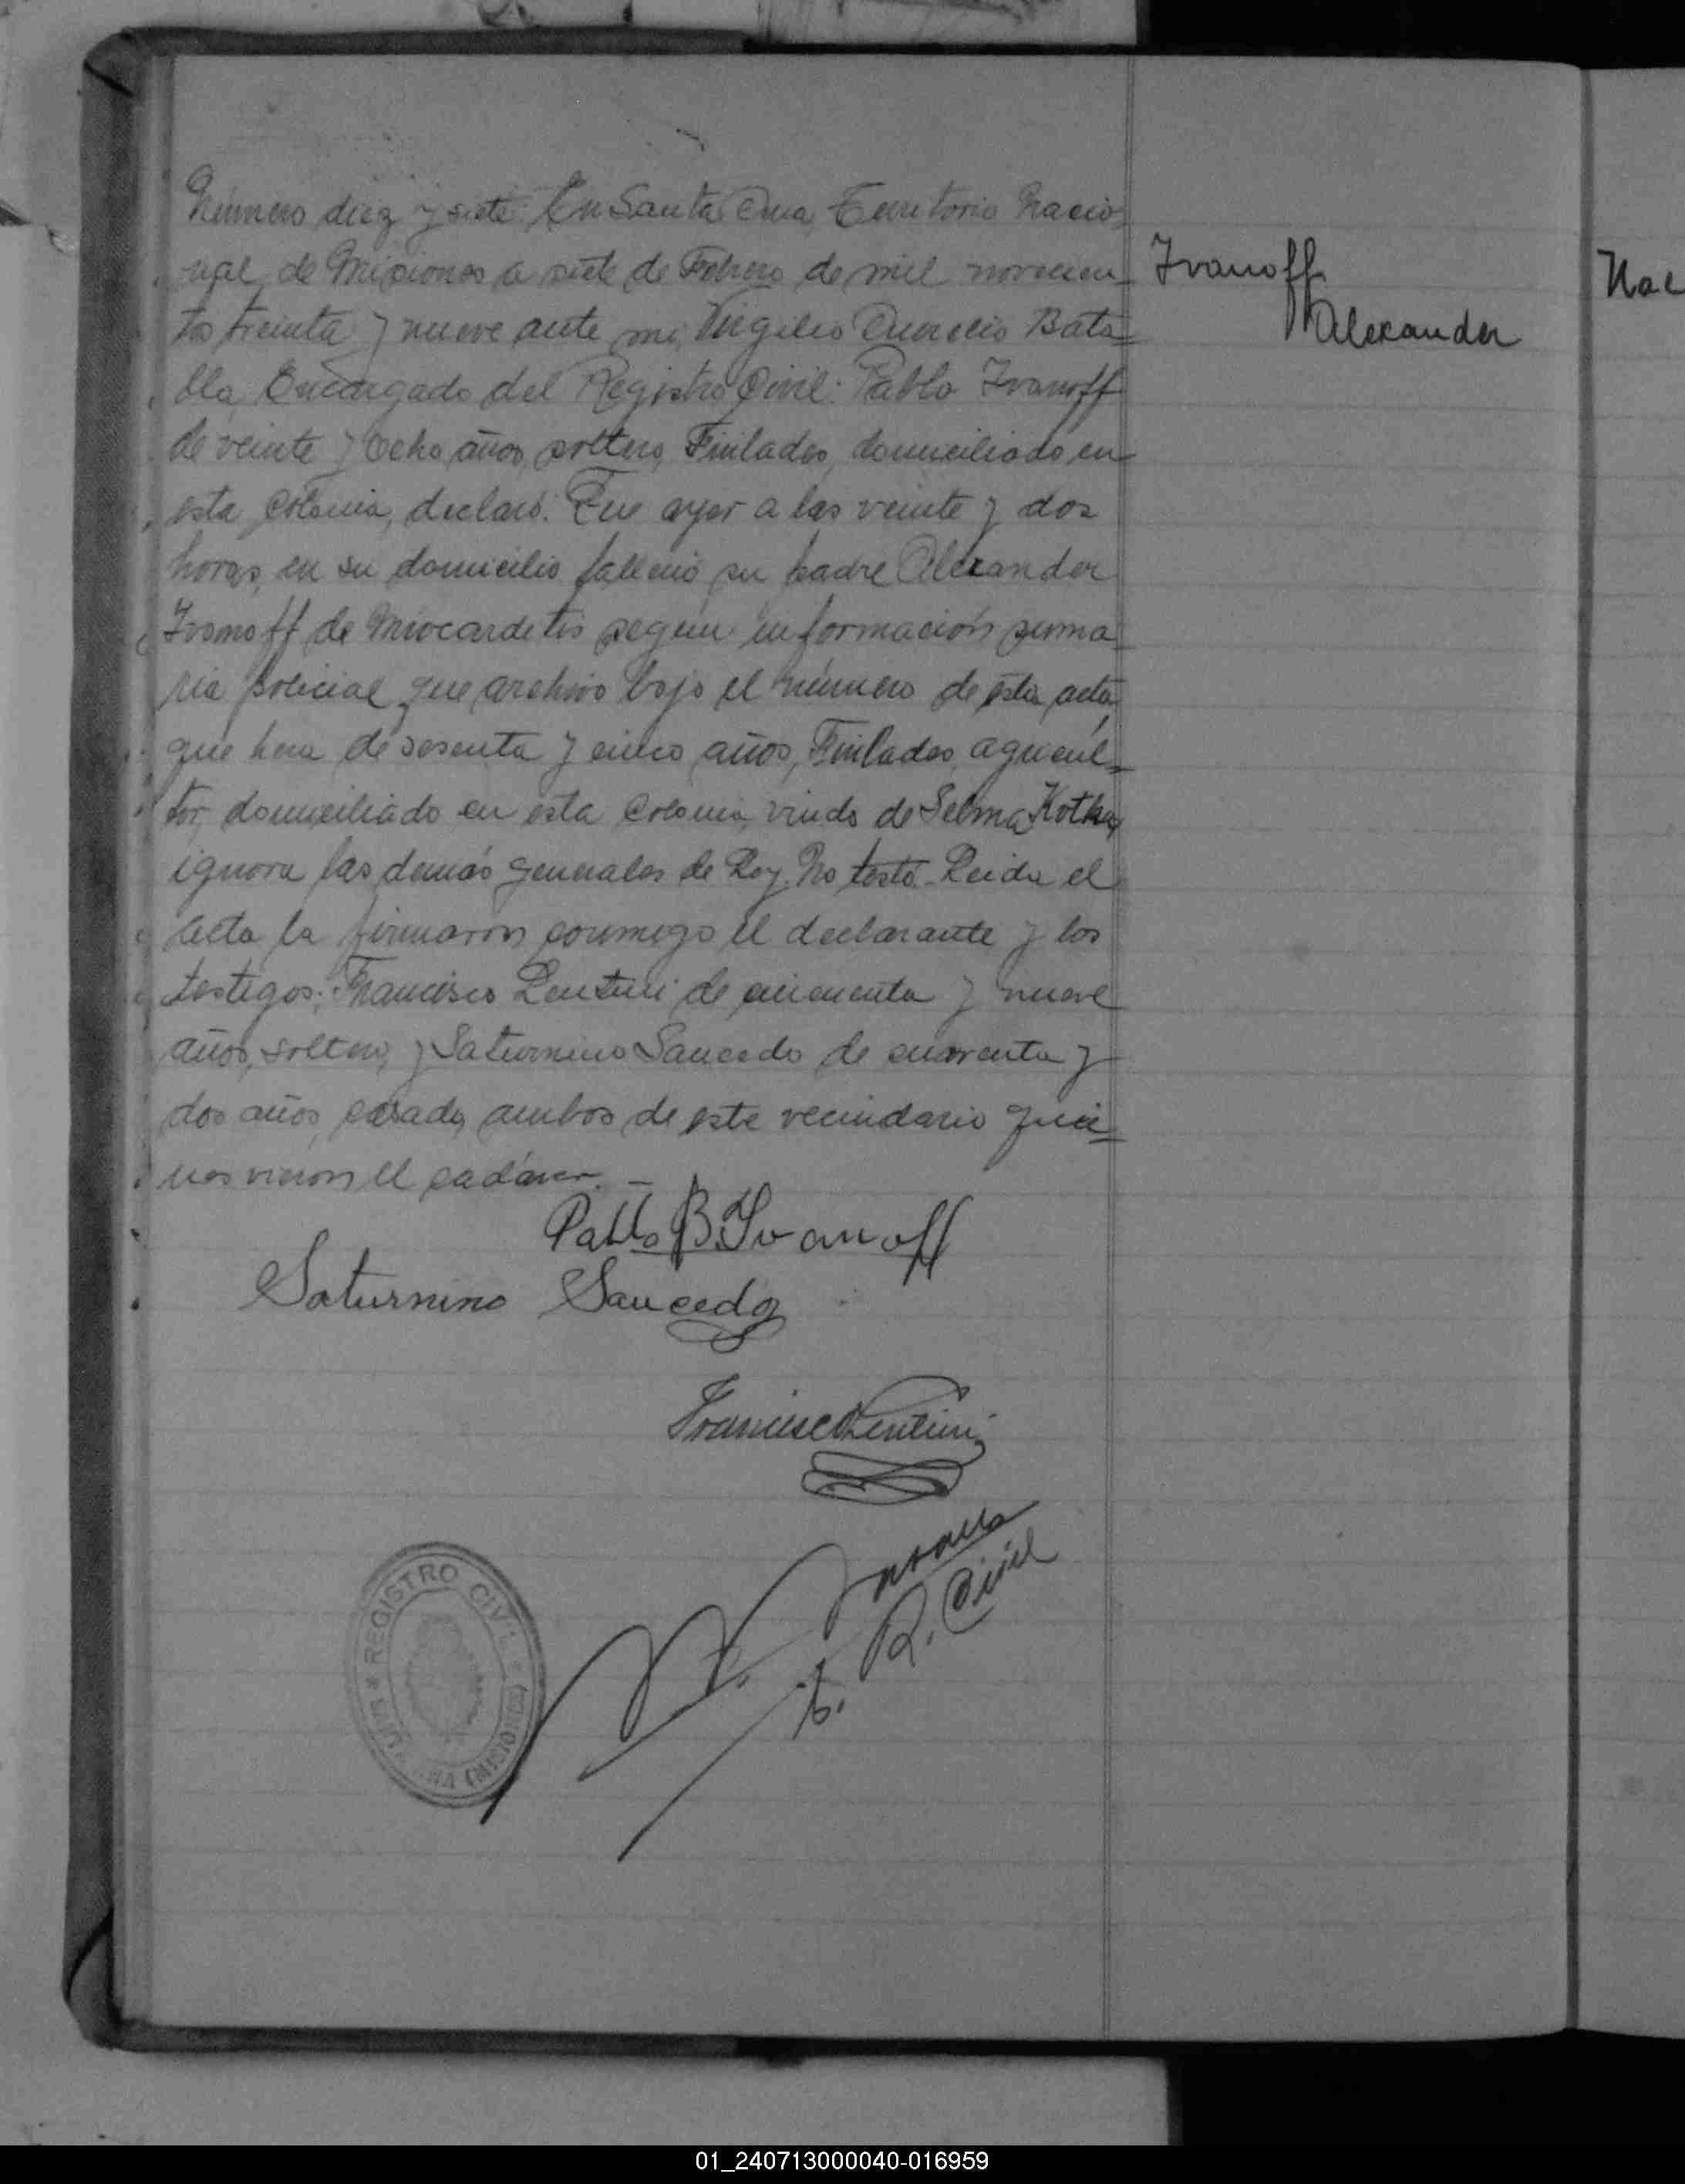 Número diez y siete. En Santa Ana, Territorio Nacio-
nal de Misiones a siete de Febrero de mil novecien-
tos treinta y nueve ante mi, Virgilio Aurelio Bata-
lla Encargado del Registro Civil: Pablo Ivanoff
de veinte y ocho años, soltero, Finlades, domiciliado en
esta Colonia, declaró: Que ayer a las veinte y dos
horas, en su domicilio falleció su padre Alexander
Ivanoff de Miocarditis según información suma-
ria policial que archivo bajo el número de esta acta,
que hera de sesenta y cinco años, Finlades, agricul-
tor, domiciliado en esta Colonia, viudo de Selma Kotka,
ignora las demás generales de Ley. No testó. Leida el
acta la firmaron conmigo el declarante y los
testigos: Francisco Lentini de cincuenta y nueve
años, soltero, y Saturnino Saucedo de cuarenta y
dos años, casado, ambos de este vecindario quie-
nes vieron el cadáver. -
Ivanoff
Alexander
Nac
Pablo B. Ivanoff
Saturnino Saucedo
Francisco Lentini
R. Civil
REGISTRO CIVIL
ANA (MISIONES)
01_240713000040-016959